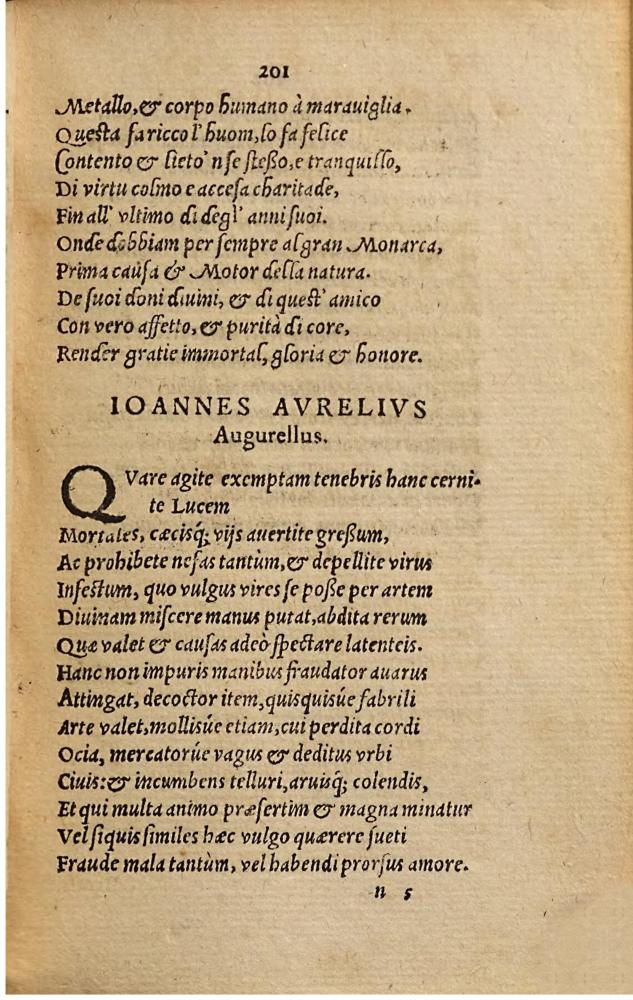 201
Metallo, & corpo humano à marauiglia.
Questa fa ricco l'huom, lo fa felice
Contento & lieto'n se steßo, e tranquillo,
Di virtu colmo e accesa charitade,
Fin all' vltimo di degl' anni suoi.
Onde dobbiam per sempre al gran Monarca,
Prima causa & Motor della natura.
De suoi doni diuini, & di quest' amico
Con vero affetto, & purità di core,
Render gratie immortal, gloria & honore.
IOANNES AVRELIVS
Augurellus.
QVare agite exemptam tenebris hanc cerni-
te Lucem
Mortales, cæcisq́; vijs auertite greßum,
Ac prohibete nefas tantùm, & depellite virus
Infestum, quo vulgus vires se poße per artem
Diuinam miscere manus putat, abdita rerum
Quæ valet & causas adeò spectare latenteis.
Hanc non impuris manibus fraudator auarus
Attingat, decoctor item, quisquisúe fabrili
Arte valet, mollisúe etiam, cui perdita cordi
Ocia, mercatorúe vagus & deditus vrbi
Ciuis: & incumbens telluri, aruisq́; colendis,
Et qui multa animo præsertim & magna minatur
Vel siquis similes hæc vulgo quærere sueti
Fraude mala tantùm, vel habendi prorsus amore.
n 5